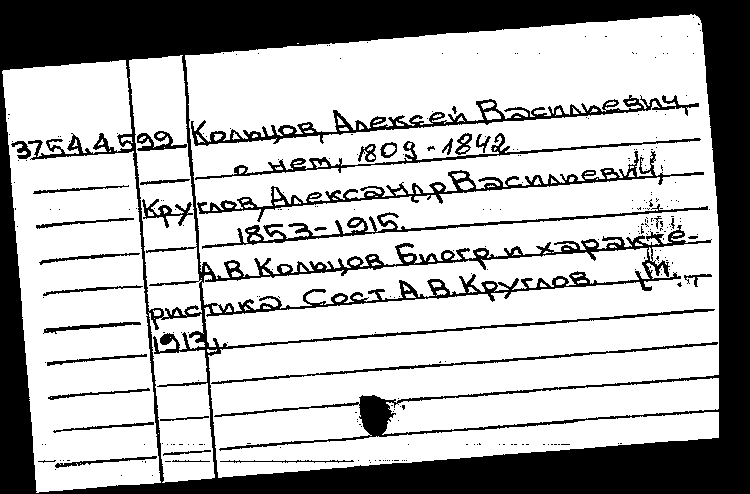 3754.4.599 Кольцов, Алексей Васильевич,
о нем, 1809-1842
Круглов, Александр Васильевич,
1853-1915.
А.В. Кольцов. Биогр. и характе-
ристика. Сост. А.В. Круглов. [М.
1913].